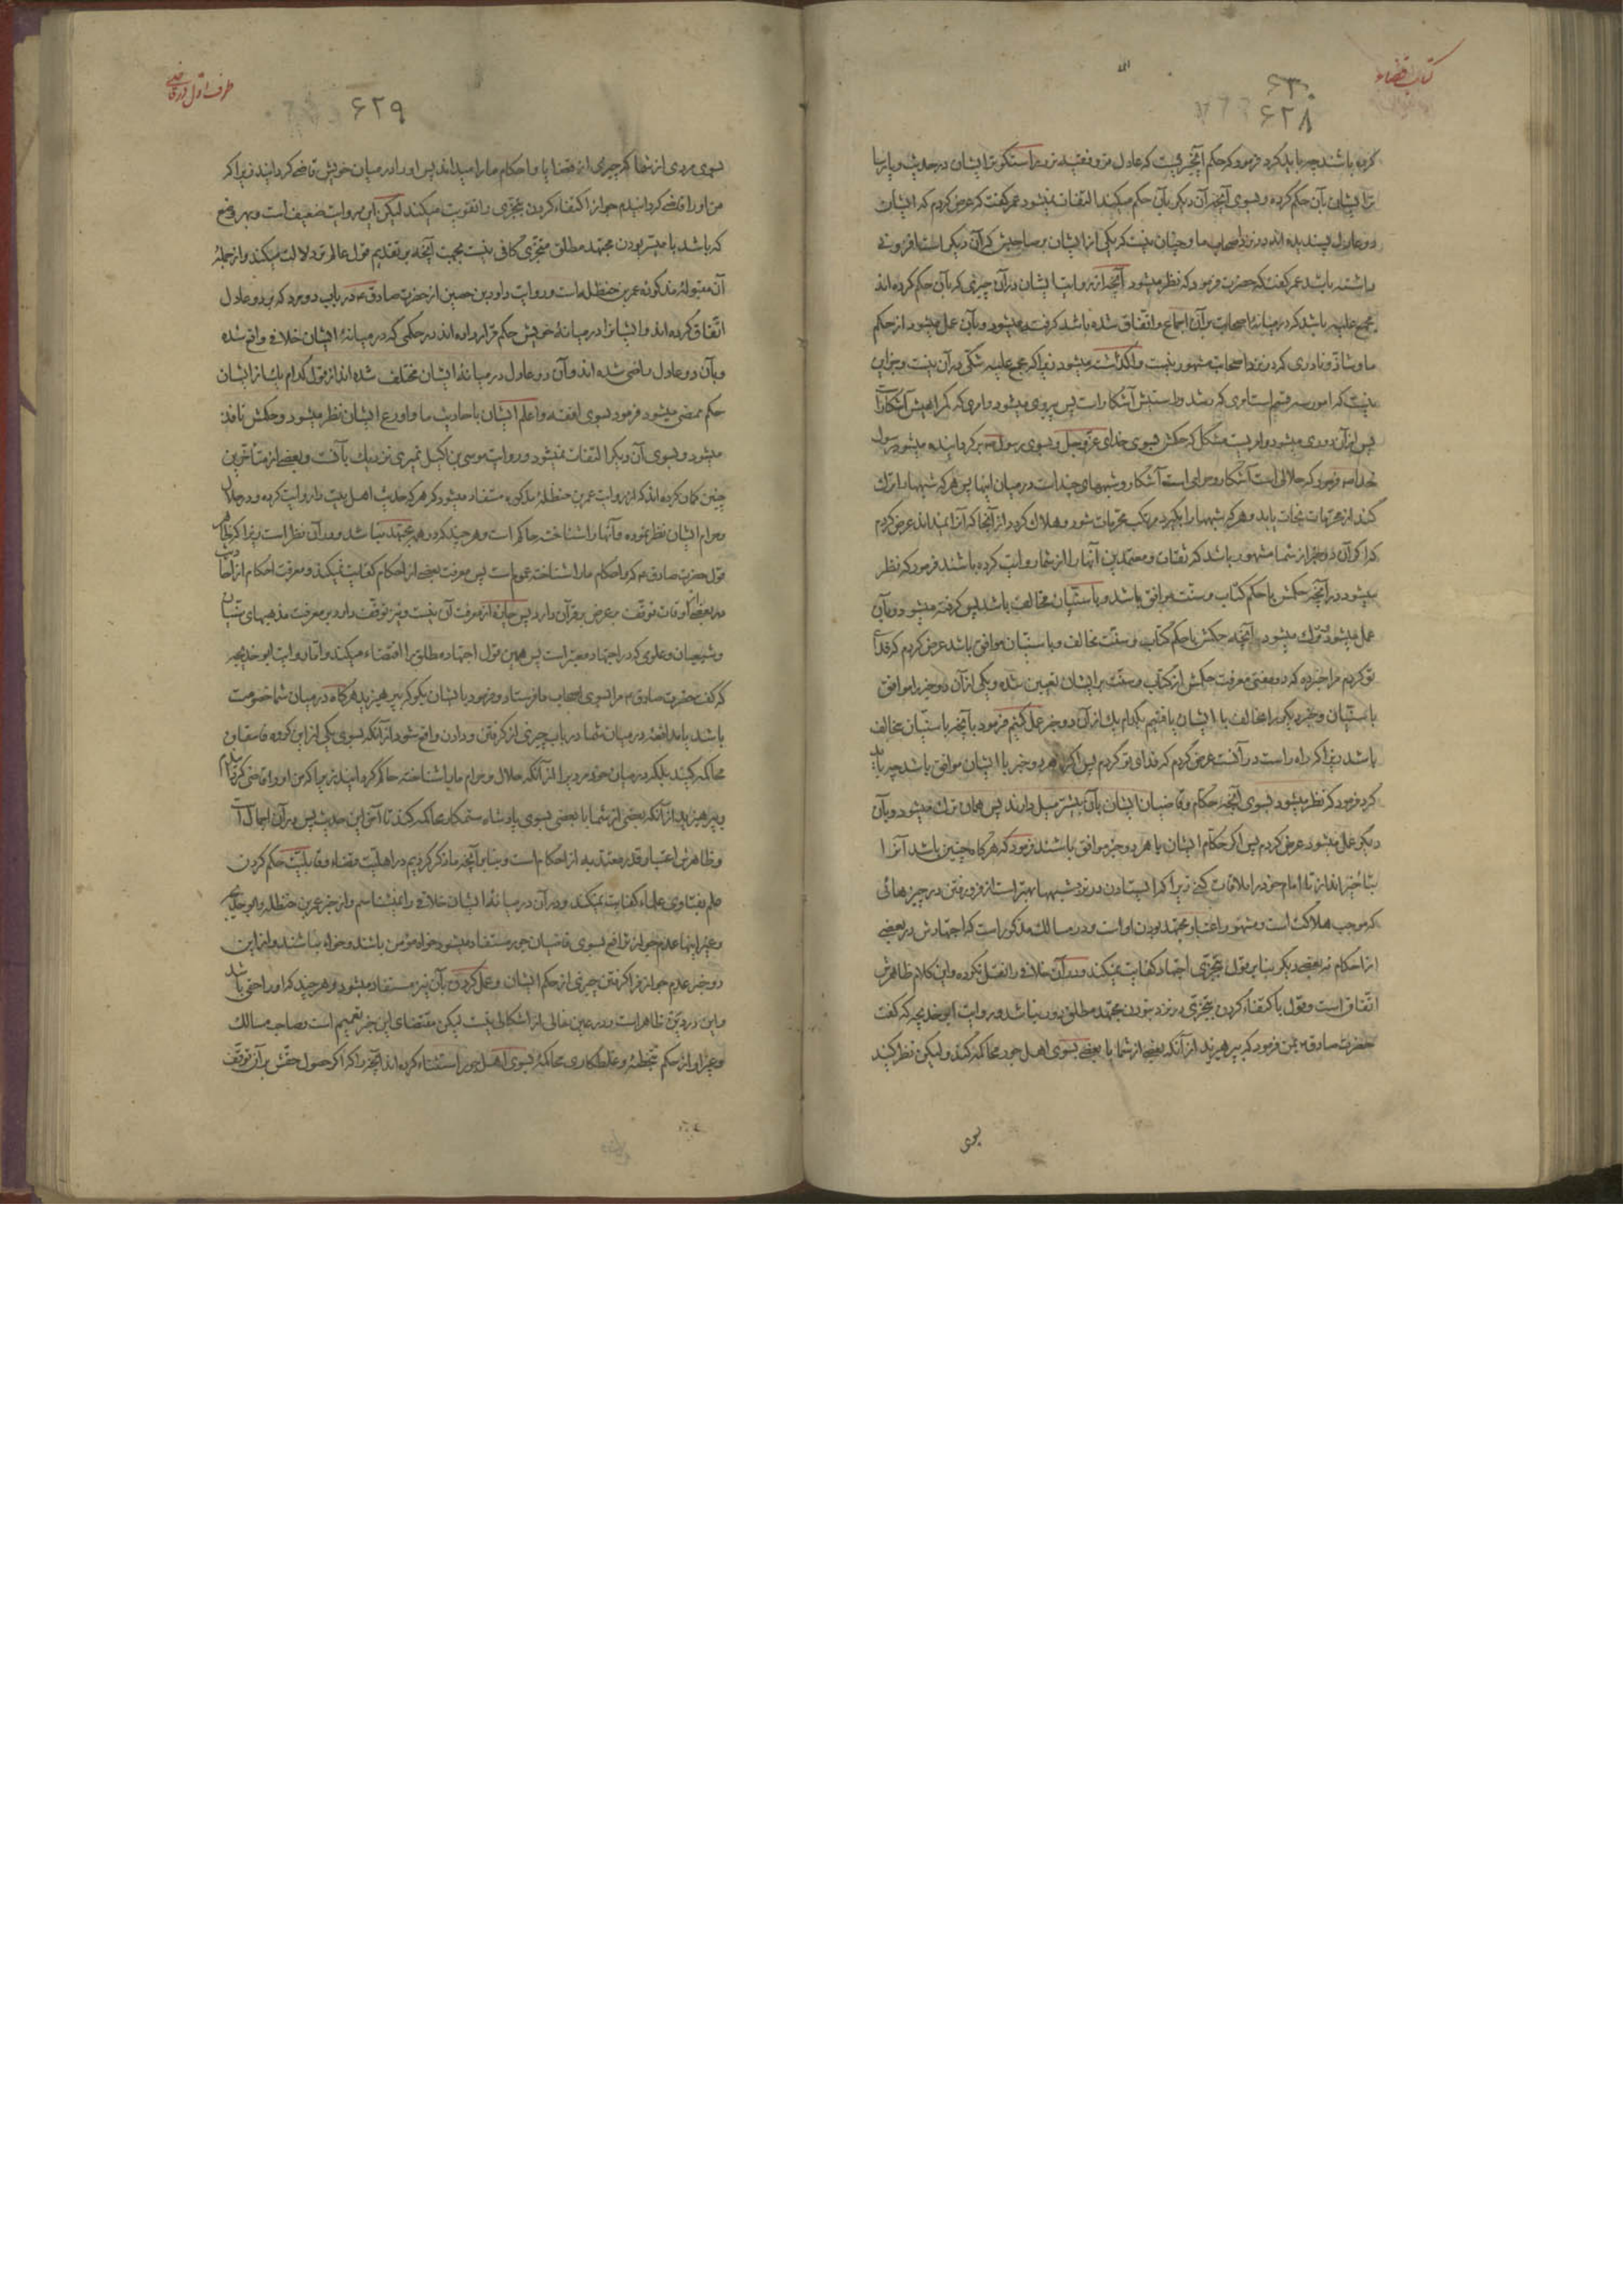 کتاب قضاء
۶۳۰
۶۲۸
کرده باشند چه باید کرد فرمود که حکم آنچیزیست که عادل تر و فقیه تر و راستگوتر ایشان در حدیث و پارسا
تر ایشان بآن حکم کرده و بسوی آنچه آن دیگر بآن حکم میکند التفات نمیشود عمر گفت که عرض کردم که ایشان
دو عادل پسندیده اند در نزد اصحاب ما و چنان نیست که یکی از ایشان بر صاحبش که آن دیگر است افزونی
داشته باشد عمر گفت که حضرت فرمود که نظر میشود آنچه از روایت ایشان در آن چیزی که بآن حکم کرده اند
مجمع علیه باشد که در میانه اصحابت بر آن اجماع و اتفاق شده باشد گرفته میشود و بآن عمل میشود از حکم
ما و شاذ و نادری که در نزد اصحاب مشهور نیست واگذاشته میشود زیرا که مجمع علیه شکی در آن نیست و جز این
نیست که امور سه قسم است امری که رشد و راستیش آشکار است پس پیروی میشود و امری که گمراهیش آشکار است
پس از آن دوری میشود و امریست مشکل که حکمش بسوی خدای عز و جل و بسوی رسول ص برگردانیده میشود رسول
خدا ص فرمود که حلالی است آشکار و حرامی است آشکار و شبهه‌ای چند است در میان اینها پس هر که شبهها را ترک
کند از محرمات نجات یابد و هر که شبهها را بگیرد مرتکب محرمات شود و هلاک گردد از آنجا که آنرا نمیداند عرض کردم
که اگر آن دو خبر از شما مشهور باشد که ثقات و معتمدین آنها را از شما روایت کرده باشند فرمود که نظر
میشود در آنچه حکمش با حکم کتاب و سنت موافق باشد و با سنّیان مخالف باشد پس گرفته میشود و بآن
عمل میشود و ترک میشود آنچه حکمش با حکم کتاب و سنّت مخالف و با سنیان موافق باشد عرض کردم که فدای
تو گردم مرا خبر ده که دو مفتی معرفت حکمش از کتاب و سنّت بر ایشان تعیین شده و یکی از آن دو خبر را موافق
با سنّیان و خبر دیگر را مخالف با ایشان یافتیم بکدام یک از آن دو خبر عمل کنیم فرمود بآنچه با سنّیان مخالف
باشد زیرا که راه راست در آنست عرض کردم که فدای تو گردم پس اگر هر دو خبر با ایشان موافق باشد چه باید
کرد فرمود که نظر میشود بسوی آنچه حکّام و قاضیان ایشان بآن بیشتر میل دارند پس همان ترک میشود و بآن
دیگر عمل میشود عرض کردم پس اگر حکّام ایشان با هر دو خبر موافق باشند فرمود که هر گاه چنین باشد آنرا
بتأخیر انداز تا امام خود را ملاقات کنی زیرا که ایستادن در نزد شبهها بهتر است از فرو رفتن در چیزهائی
که موجب هلاکت است و مشهور اعتبار مجتهد بودن او است و در مسالک مذکور است که اجتهادش در بعضی
از احکام نه بعضی دیگر بنا بر قول بتجزّی اجتهاد کفایت نمیکند و در آن خلافی را نقل نکرده و این کلام ظاهرش
اتّفاق است و قول باکتفاء کردن بتجزّی در نزد نبودن مجتهد مطلق دور نباشد و روایت ابو خدیجه که گفت
حضرت صادق ع بمن فرمود که بپرهیزید از آنکه بعضی از شما با بعضی بسوی اهل جور محاکمه کند و لیکن نظر کنید
بسوی
طرف اول در قاضی
۶۲۹
بسوی مردی از شما که چیزی از قضایا و احکام ما را میداند پس او را در میان خویش قاضی گردانید زیرا که
من او را قاضی گردانیدم جواز اکتفاء کردن بتجزّی را تقویت میکند لیکن این روایت ضعیف است و بهر وضع
که باشد با میسّر بودن مجتهد مطلق متجزّی کافی نیست بجهت آنچه بر تقدیم قول عالم تر دلالت میکند و از جمله
آن مقبولۀ مذکوره عمر بن حنظله است و روایت داود بن حصین از حضرت صادق ع در باب دو مرد که بر دو عادل
اتّفاق کرده اند و ایشانرا در میانۀ خویش حکم قرار داده اند در حکمی که در میانۀ ایشان خلافی واقع شده
و بآن دو عادل راضی شده اند و آن دو عادل در میانۀ ایشان مختلف شده اند از قول کدام یک از ایشان
حکم ممضی میشود فرمود بسوی افقه و اعلم ایشان باحادیث ما و اورع ایشان نظر میشود و حکمش نافذ
میشود و بسوی آن دیگر التفات نمیشود و روایت موسی بن اکیل نمیری نزدیک بآنست و بعضی از متأخرین
چنین گمان کرده اند که از روایت عمر بن حنظلۀ مذکوره مستفاد میشود که هر که حدیث اهل بیت را روایت کرده و در حلال
و حرام ایشان نظر نموده و آنها را شناخته حاکم است و هر چند که در همه مجتهد نباشد و در آن نظر است زیرا که ظاهر
قول حضرت صادق ع که و احکام ما را شناخته عموم است پس معرفت بعضی از احکام کفایت نمیکند و معرفت احکام از احادیث
در بعضی اوقات توقّف بر عرض بر قرآن دارد پس چاره از معرفت آن نیست و نیز توقّف دارد بر معرفت مذهبهای سنّیان
و شیعیان و علومی که در اجتهاد معتبر است پس همین قول اجتهاد مطلق را اقتضاء میکند و امّا روایت ابو خدیجه
که گفت حضرت صادق ع مرا بسوی اصحاب ما فرستاد و فرمود بایشان بگو که بپرهیزید هر گاه در میان شما خصومت
باشد یا مدافعه در میان شما در باب چیزی از گرفتن و دادن واقع شود از آنکه بسوی یکی از این گروه فاسقان
محاکمه کنید بلکه در میان خود مردیرا از آنکه حلال و حرام ما را شناخته حاکم گردانید زیرا که من او را قاضی گردانیدم
و بپرهیزید از آنکه بعضی از شما با بعضی بسوی پادشاه ستمکار محاکمه کند تا آخر این حدیث پس در آن اجمال است
و ظاهرش اعتبار قدر معتدّ به از احکام است و بنا بر آنچه ما ذکر کردیم در اهلیّت قضاء و قابلیّت حکم کردن
علم بفتاوی علماء کفایت نمیکند و در آن در میانۀ ایشان خلافی را نمیشناسم و از خبر عمر بن حنظله و خبر حلبی
و غیر اینها عدم جواز ترافع بسوی قاضیان جور مستفاد میشود خواه مؤمن باشند و خواه نباشند و از این
دو خبر عدم جواز فرا گرفتن چیزی از حکم ایشان و عمل کردن بآن نیز مستفاد میشود و هر چند که او را حقّی باشد
و این در دین ظاهر است و در عین خالی از اشکالی نیست لیکن مقتضای این خبر تعمیم است و صاحب مسالک
و غیر او از حکم تخطئه و غلطکاری محاکمۀ بسوی اهل جور استثناء کرده اند آنچه را که اگر حصول حقّش بر آن توقّف